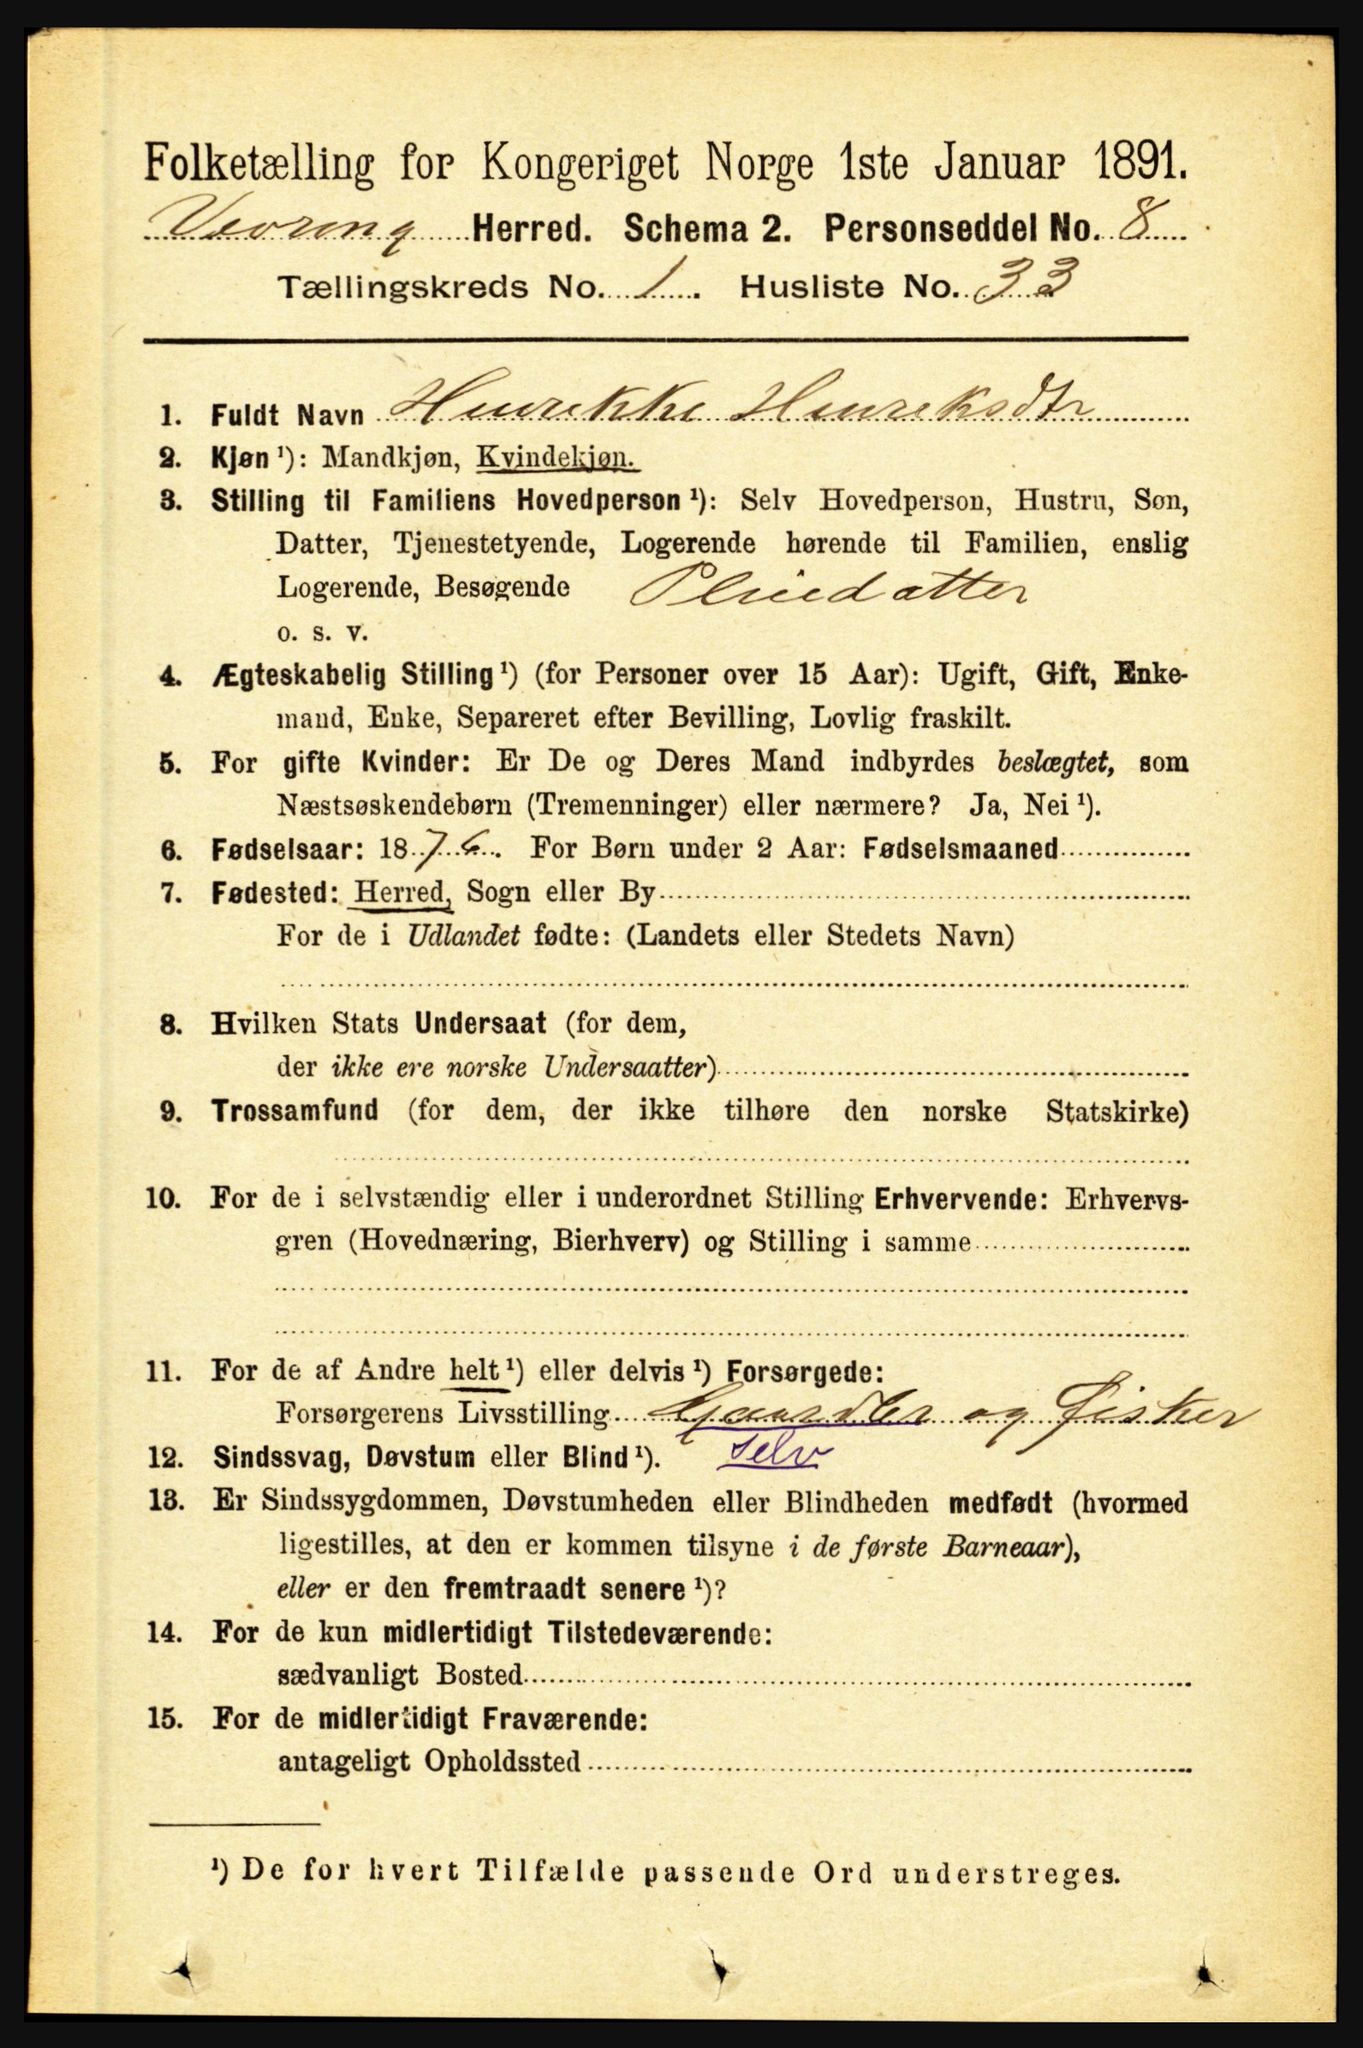 Folketælling for Kongeriget Norge 1ste Januar 1891.
Vevring Herred. Schema 2. Personseddel No. 8
Tællingskreds No. 1. Husliste No. 33
1. Fuldt Navn Henrikke Henriksdtr
2. Kjøn ¹): Mandkjøn, Kvindekjøn.
3. Stilling til Familiens Hovedperson ¹): Selv Hovedperson, Hustru, Søn,
Datter, Tjenestetyende, Logerende hørende til Familien, enslig
Logerende, Besøgende Pleiedatter
o. s. v.
4. Ægteskabelig Stilling ¹) (for Personer over 15 Aar): Ugift, Gift, Enke-
mand, Enke, Separeret efter Bevilling, Lovlig fraskilt.
5. For gifte Kvinder: Er De og Deres Mand indbyrdes beslægtet, som
Næstsøskendebørn (Tremenninger) eller nærmere? Ja, Nei ¹).
6. Fødselsaar: 1876. For Børn under 2 Aar: Fødselsmaaned
7. Fødested: Herred, Sogn eller By
For de i Udlandet fødte: (Landets eller Stedets Navn)
8. Hvilken Stats Undersaat (for dem,
der ikke ere norske Undersaatter)
9. Trossamfund (for dem, der ikke tilhøre den norske Statskirke)
10. For de i selvstændig eller i underordnet Stilling Erhvervende: Erhvervs-
gren (Hovednæring, Bierhverv) og Stilling i samme
11. For de af Andre helt ¹) eller delvis ¹) Forsørgede:
Forsørgerens Livsstilling Gaardbr og Fisker
12. Sindssvag, Døvstum eller Blind ¹). Selv
13. Er Sindssygdommen, Døvstumheden eller Blindheden medfødt (hvormed
ligestilles, at den er kommen tilsyne i de første Barneaar),
eller er den fremtraadt senere ¹)?
14. For de kun midlertidigt Tilstedeværende:
sædvanligt Bosted
15. For de midlertidigt Fraværende:
antageligt Opholdssted
¹) De for hvert Tilfælde passende Ord understreges.